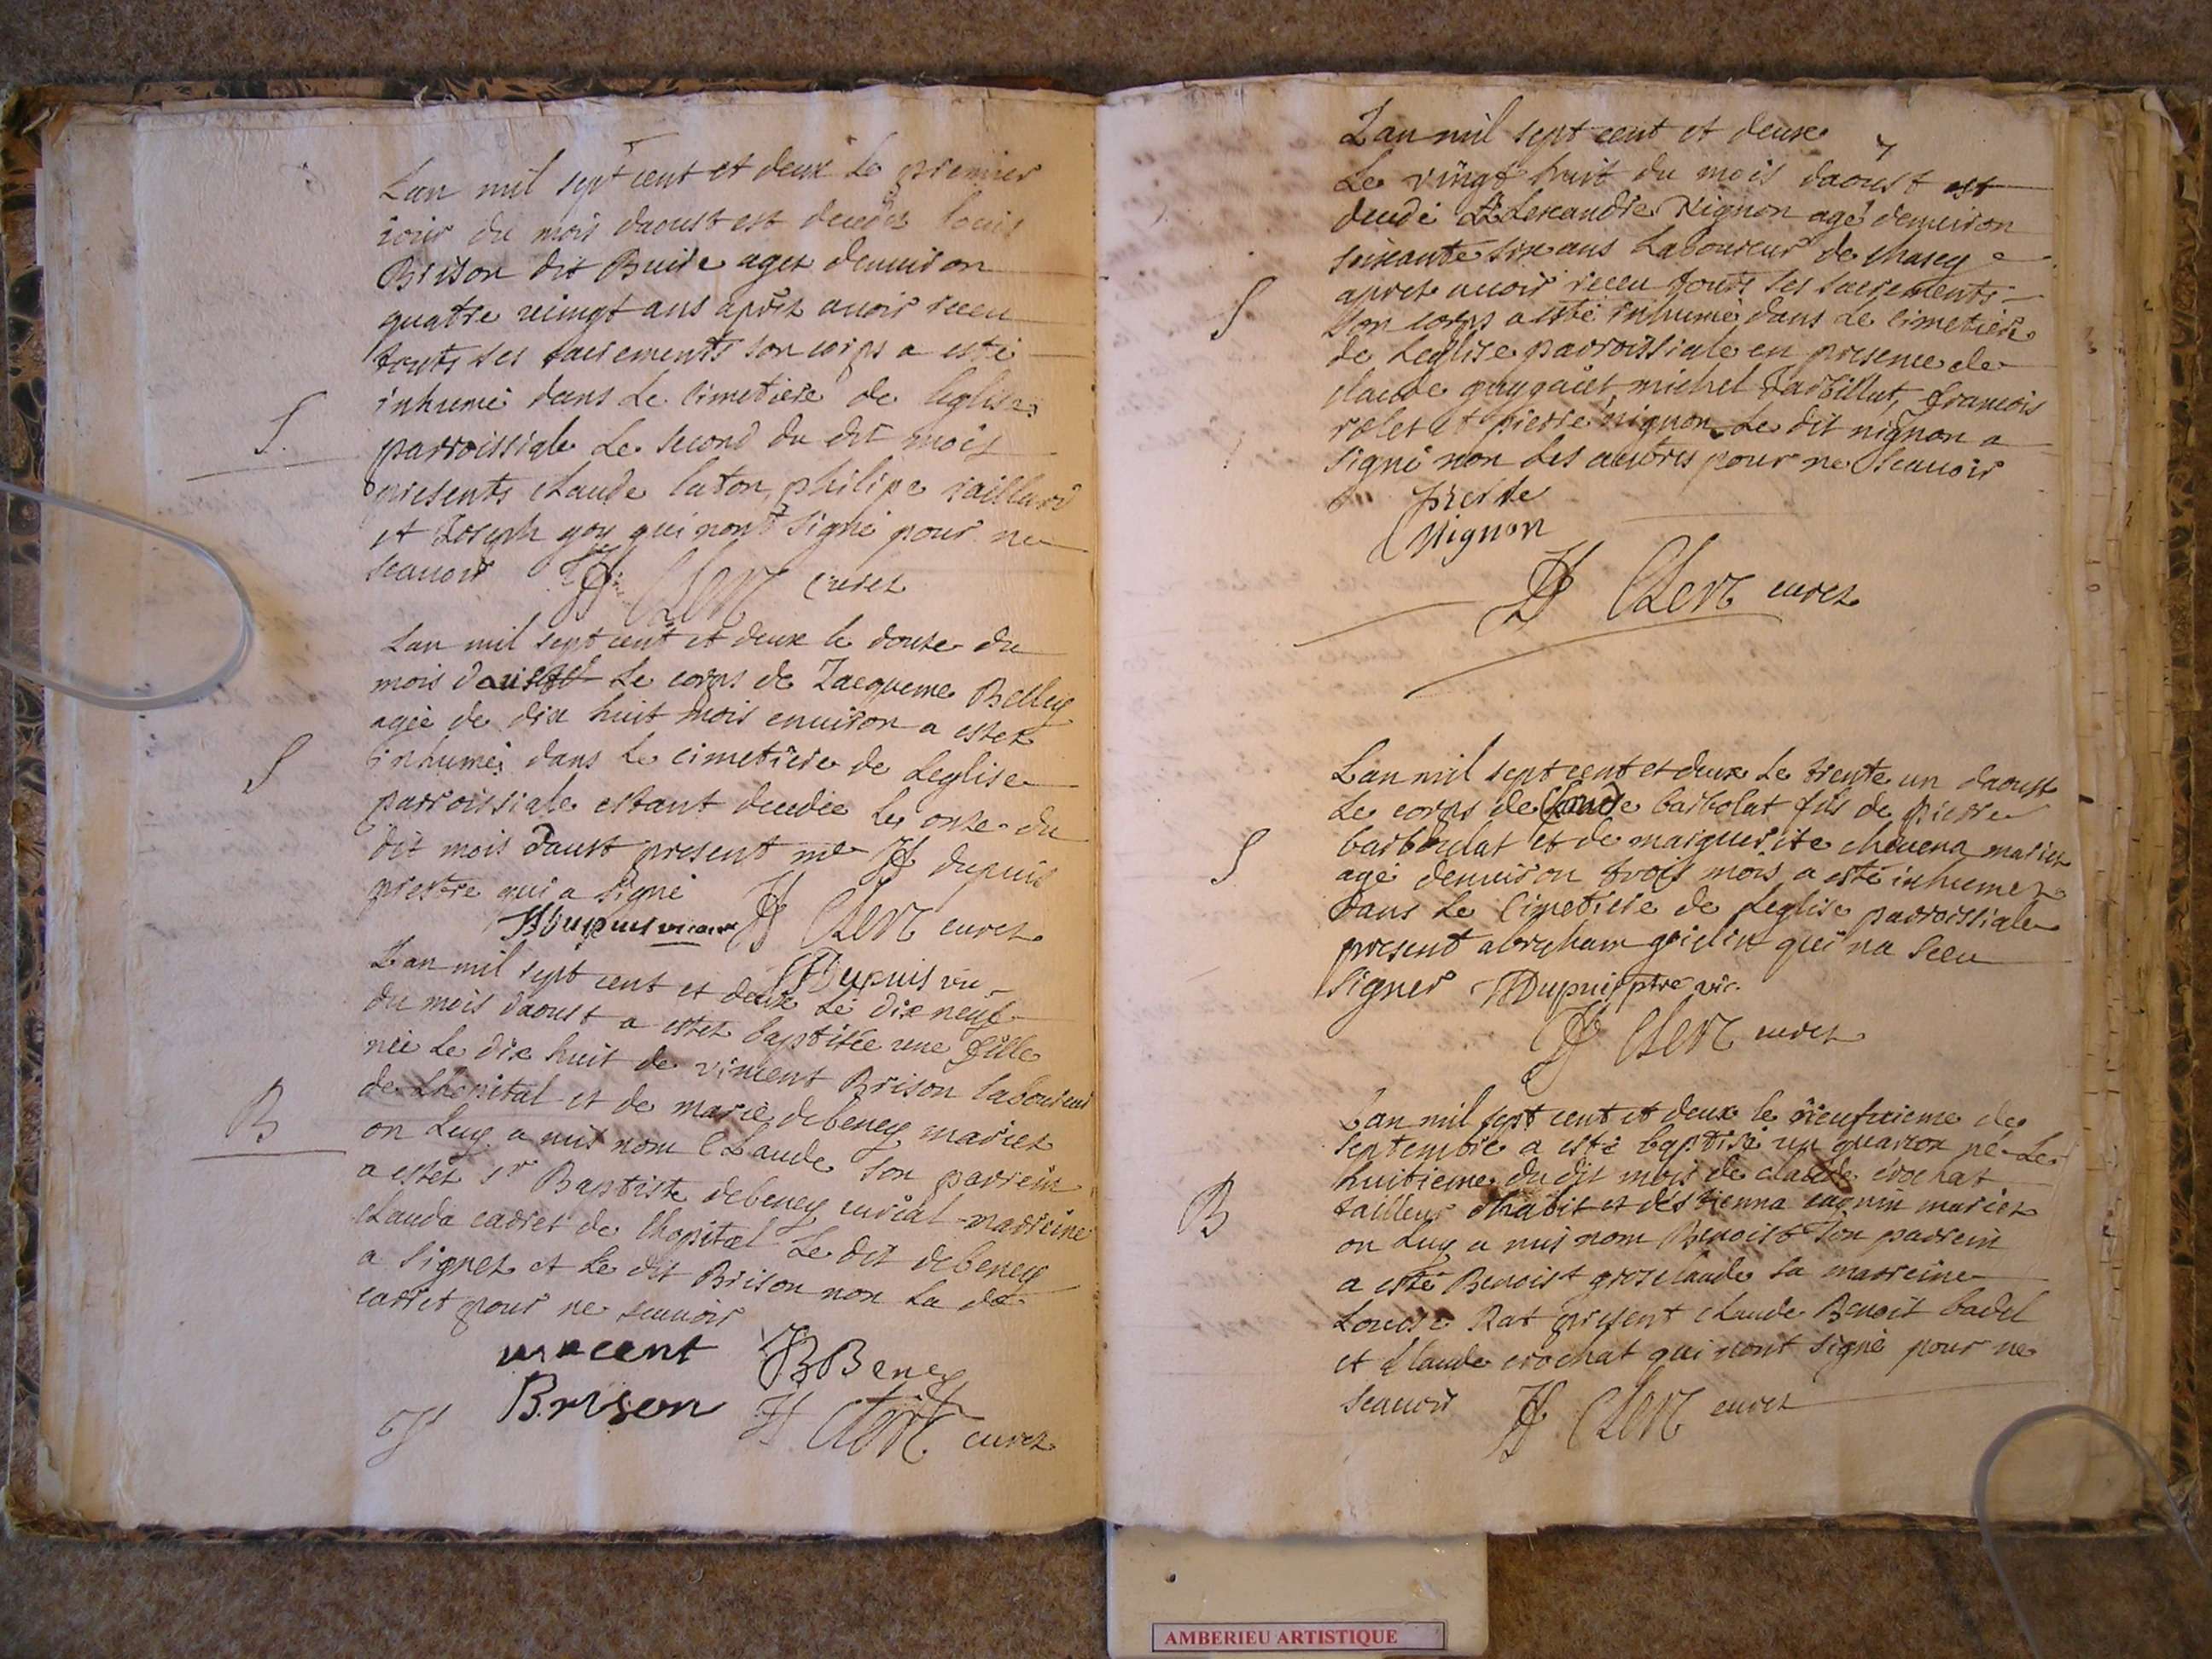 Lan mil sept cent et deux le premier
iour du mois daoust est decedez louis
Brison dit Buire agez denuiron
quatre uingt ans aprez auoir receu
touts ses sacrements son corps a esté
inhumé dans le cimetiere de leglise
S.
parroissiale le second du dit mois
presents claude laton, philipe raillard
et Joseph goy qui nont signé pour ne
scauoir Clerc curez
Lan mil sept cent et deux le douze du
mois le corps de Jacqueme Belley
agée de dix huit mois enuiron a estez
S
inhumé dans le cimetiere de Leglise
parroissiale estant decedée le onze du
dit mois daust present me dupuis
prestre qui a signé
Dupuis vicaire Clerc curez
Dupuis vic
Lan mil sept cent et deux le dix neuf
du mois daoust a estez baptisée une fille
née le dix huit de vincent Brison laboureur
de Lhopital et de marie debeney mariez
B
on luy a mis nom Claude son parrein
a estez sr Baptiste debeney curial marreine
clauda carret de lhopital le dit debeney
a signez et le dit Brison non la de
carret pour ne scauoir
vincent JBBeney
Brison Clerc curez
Lan mil sept cent et deux
Le vingt huit du mois daoust est
decedé Alexandre Nignon agé denuiron
soixante six ans Laboureur de chasey
S
aprez auoir receu touts ses sacrements
son corps a esté inhumé dans le cimetiere
de Leglise parroissiale en presence de
claude guygaiet, michel Tarbillat, francois
rolet et pierre nignon Le dit nignon a
signé non les autres pour ne scauoir
pierre
Nignon
Clerc curez
Lan mil sept cent et deux le trente un daoust
Le corps de Claude barbolat fils de pierre
S
barbolat et de marguerite chauena mariez
agé denuiron trois mois a esté inhumez
dans le cimetiere de leglise parroissiale
present abraham goiclin qui na sceu
signer Dupuis ptre vic.
Clerc curez
Lan mil sept cent et deux le neufuieme de
septembre a esté baptisé un guarcon né Le
huitieme du dit mois de claude crochat
B
tailleur dhabit et destienna cagnin mariez
on luy a mis nom Benoist son parrein
a esté Benoist grosclaude sa marreine
Louise Rat present claude Benoit badel
et claude crochat qui nont signé pour ne
scauoir Clerc curez
AMBERIEU ARTISTIQUE